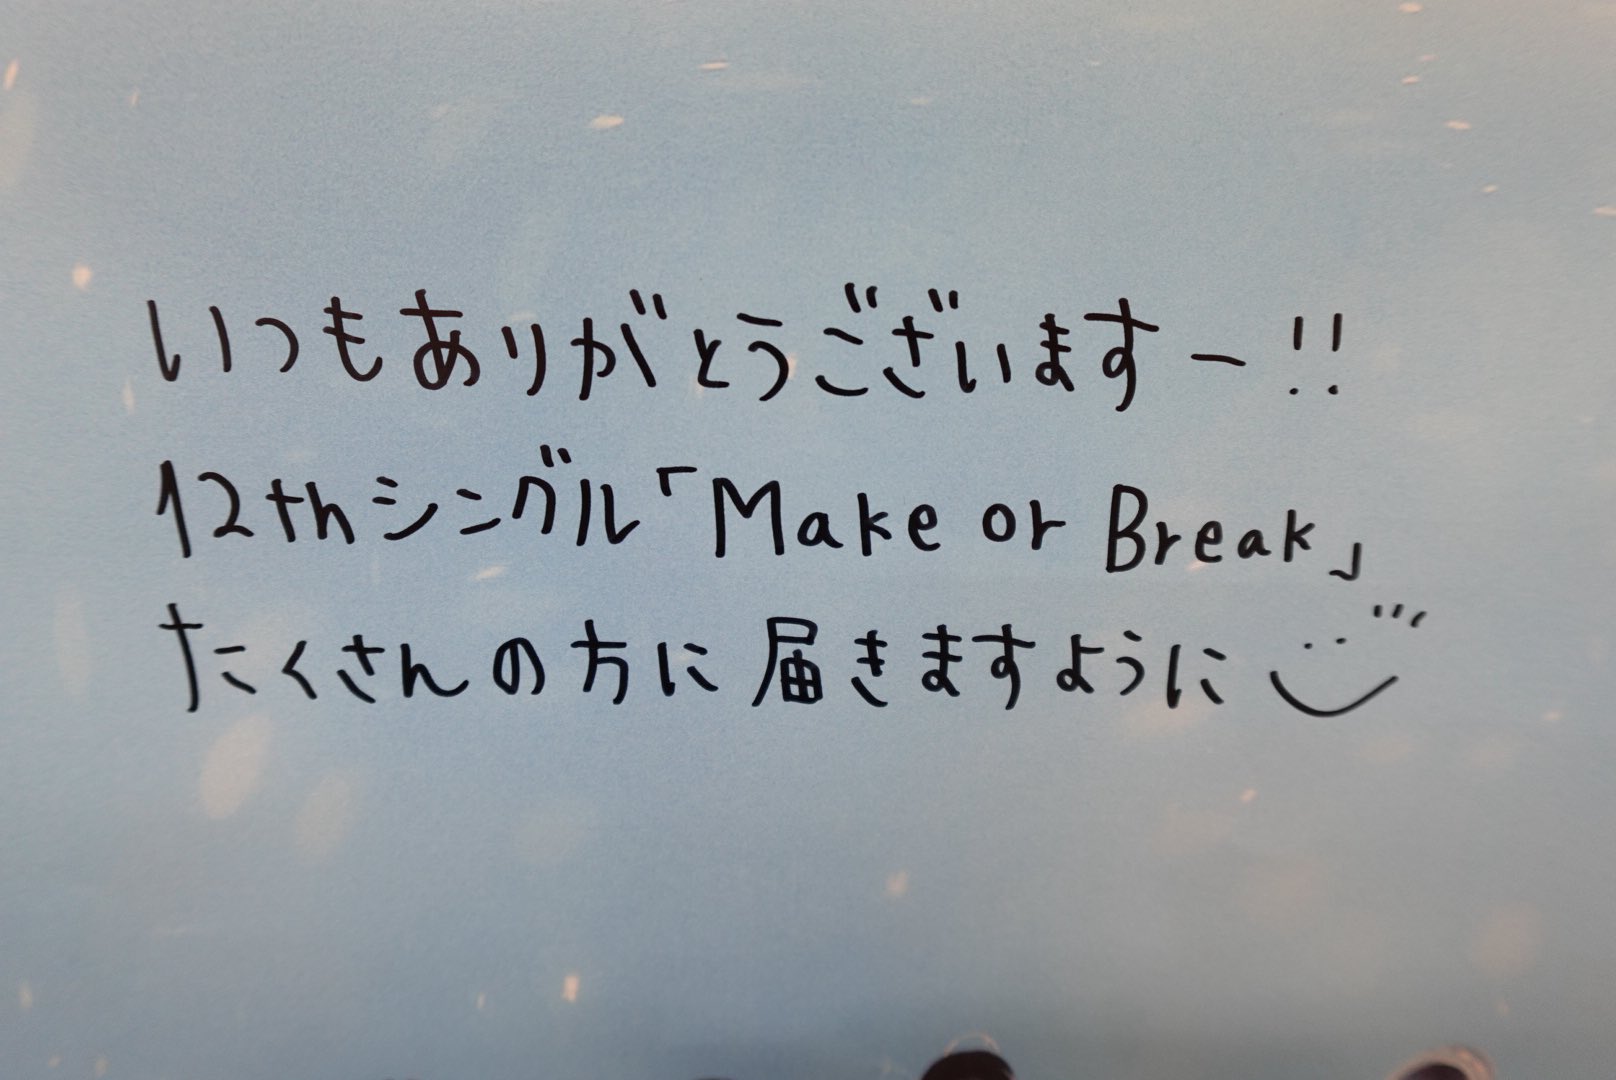 いつもありがとうございますー!!
12thシングル「Make or Break」
たくさんの方に届きますように